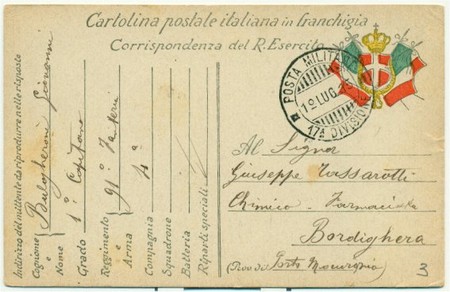 Cartolina postale italiana in franchigia
Corrispondenza del R. Esercito
POSTA MILITARE
1º LUG.
17ª DIVISIONE
Indirizzo del mittente da riprodurre nelle risposte
Cognome e Nome Giovanni
Grado 1º Capitano
Reggimento e Arma 91º Fanteria
Compagnia 4ª
Squadrone
Batteria
Riparti speciali
Al Signor
Giuseppe Tassarotti
Chimico - Farmacista
Bordighera
(Prov. di) Porto Maurizio
3